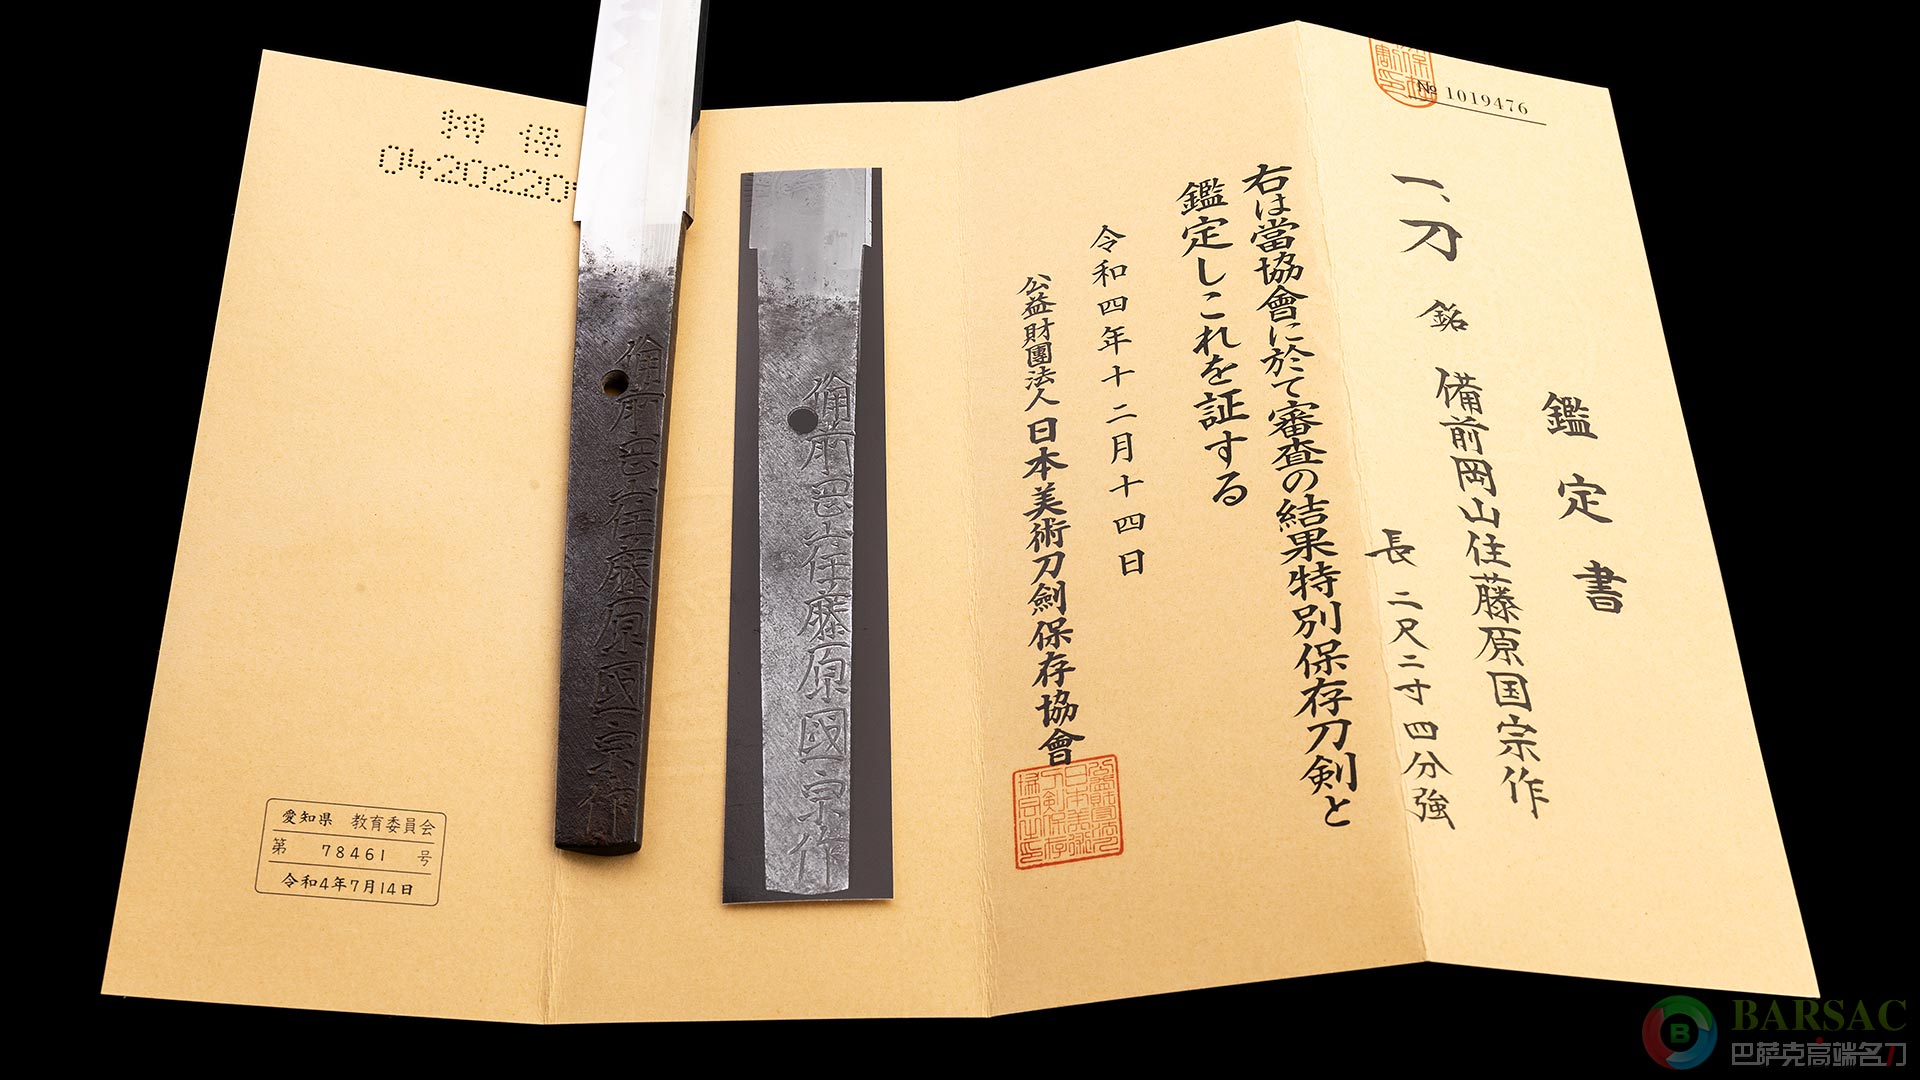 № 1019476
鑑定書
一、刀 銘 備前岡山住藤原国宗作
長 二尺二寸四分強
右は當協會に於て審査の結果特別保存刀剣と
鑑定しこれを証する
令和四年十二月十四日
公益財團法人日本美術刀劍保存協會
備前岡山住藤原國宗作
備前岡山住藤原國宗作
特 保
0420220
愛知県 教育委員会
第 78461 号
令和4年7月14日
BARSAC
巴萨克高端名刀
B